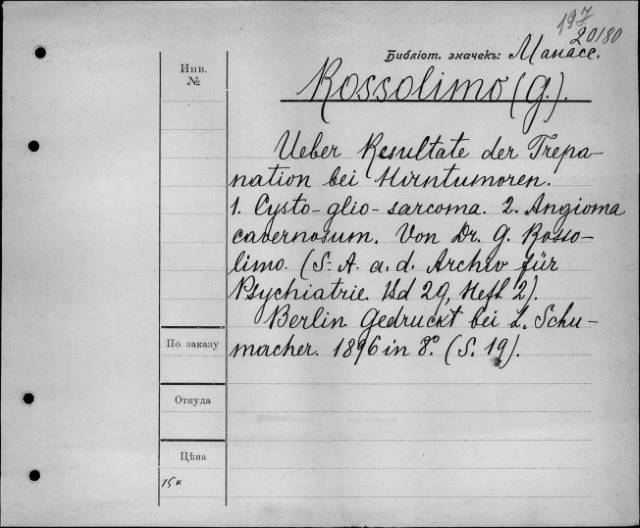 197
20180
Библіот. значекъ: Манасс.
Инв.
№
Rossolimo (G.).
Ueber Resultate der Trepa-
nation bei Hirntumoren.
1. Cysto-glio-sarcoma. 2. Angioma
cavernosum. Von Dr. G. Rosso-
limo. (S. A. a. d. Archiv für
Psychiatrie Bd 29, Heft 2).
Berlin Gedruckt bei L. Schu-
macher. 1896 in 8º. (S. 19).
По заказу
Откуда
Цѣна
15к